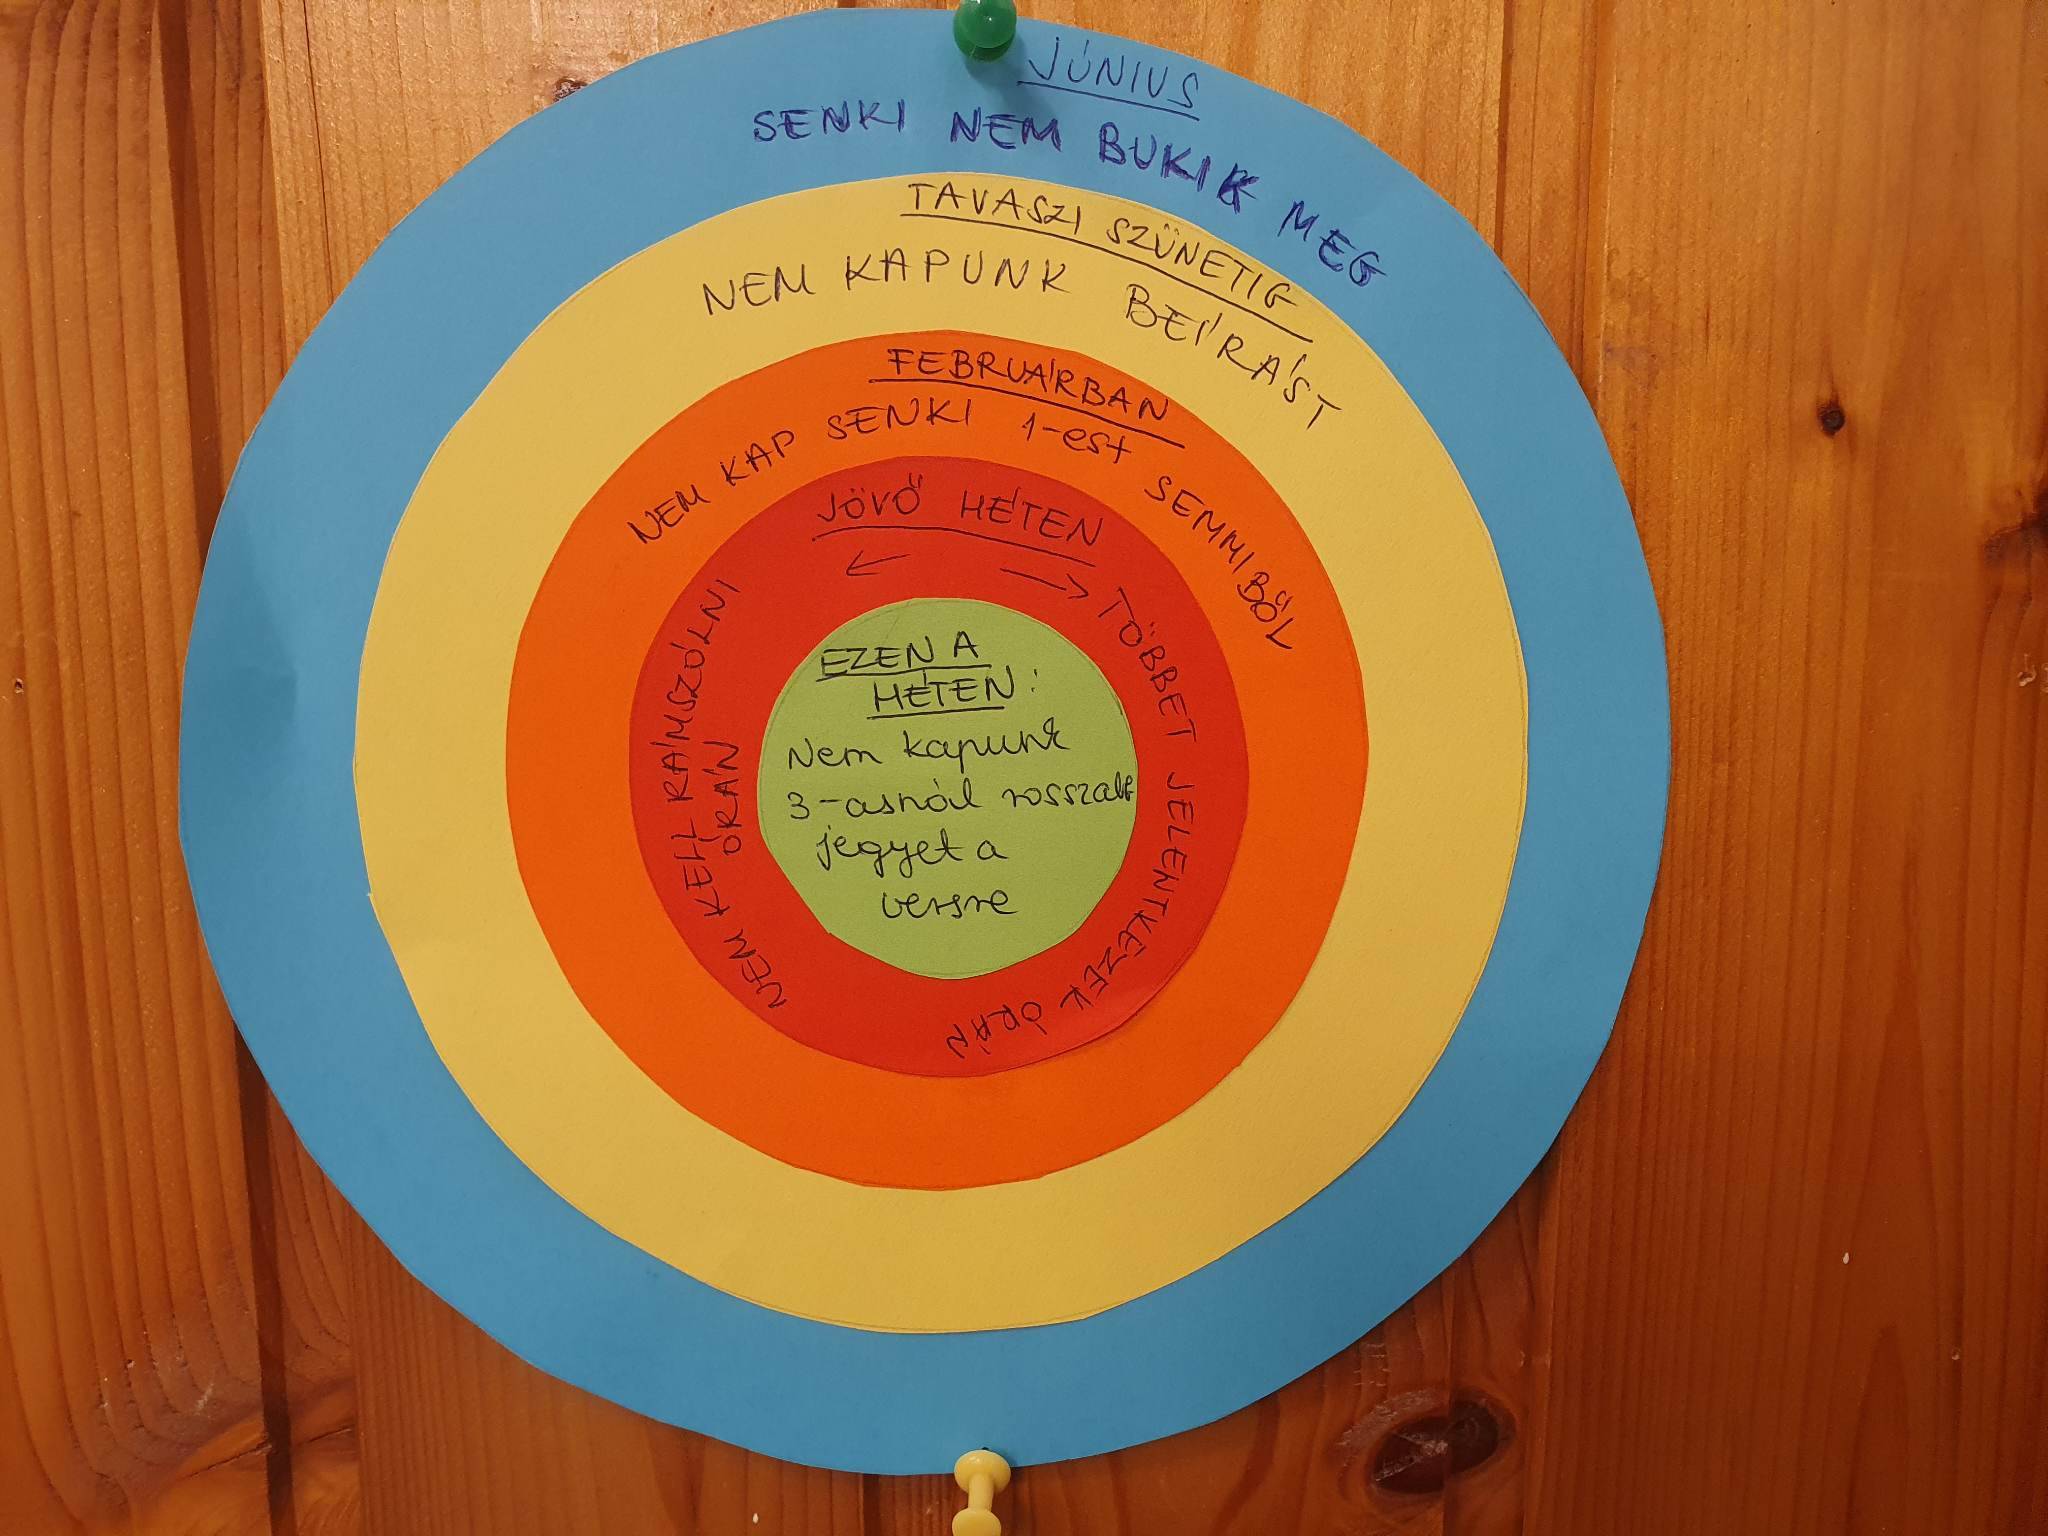 JÚNIUS
SENKI NEM BUKIK MEG
TAVASZI SZÜNETIG
NEM KAPUNK BEÍRÁST
FEBRUÁRBAN
NEM KAP SENKI 1-est SEMMIBŐL
JÖVŐ HÉTEN
← →
NEM KELL RÁMSZÓLNI
ÓRÁN
TÖBBET JELENTKEZEK ÓRÁN
EZEN A
HÉTEN:
Nem kapunk
3-asnál rosszabb
jegyet a
versre